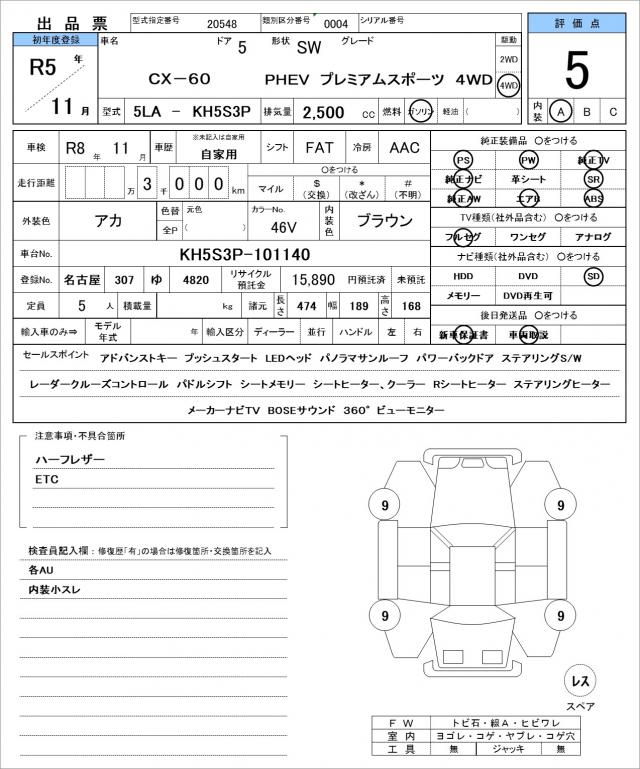 出 品 票 型式指定番号 20548 類別区分番号 0004 シリアル番号
評 価 点
初年度登録 車名 ドア 5 形状 SW グレード 駆動
R5 年 2WD
CX-60 PHEV プレミアムスポーツ 4WD 4WD
5
11 月 型式 5LA - KH5S3P 排気量 2,500 cc 燃料 ガソリン 軽油 ( )
内装 A B C
車検 R8 年 11 月 車歴 ※未記入は自家用 自家用 シフト FAT 冷房 AAC
走行距離 万 3 千 0 0 0 km
○をつける
マイル $ (交換) * (改ざん) # (不明)
外装色 アカ 色替 元色 カラーNo. 内装色 ブラウン
全P ( ) 46V
車台No. KH5S3P-101140
登録No. 名古屋 307 ゆ 4820 リサイクル預託金 15,890 円預託済 未預託
定員 5 人 積載量 kg 諸元 長さ 474 幅 189 高さ 168
輸入車のみ⇒ モデル年式 年 輸入区分 ディーラー 並行 ハンドル 左 右
純正装備品 ○をつける
PS PW 純正TV
純正ナビ 革シート SR
純正AW エアB ABS
TV種類(社外品含む) ○をつける
フルセグ ワンセグ アナログ
ナビ種類(社外品含む) ○をつける
HDD DVD SD
メモリー DVD再生可
後日発送品 ○をつける
新車保証書 車両取説
セールスポイント アドバンストキー プッシュスタート LEDヘッド パノラマサンルーフ パワーバックドア ステアリングS/W
レーダークルーズコントロール パドルシフト シートメモリー シートヒーター、クーラー Rシートヒーター ステアリングヒーター
メーカーナビTV BOSEサウンド 360°ビューモニター
注意事項・不具合箇所
ハーフレザー
ETC
検査員記入欄:修復歴「有」の場合は修復箇所・交換箇所を記入
各AU
内装小スレ
9 9
9 9
レス
スペア
FW トビ石・線A・ヒビワレ
室 内 ヨゴレ・コゲ・ヤブレ・コゲ穴
工 具 無 ジャッキ 無